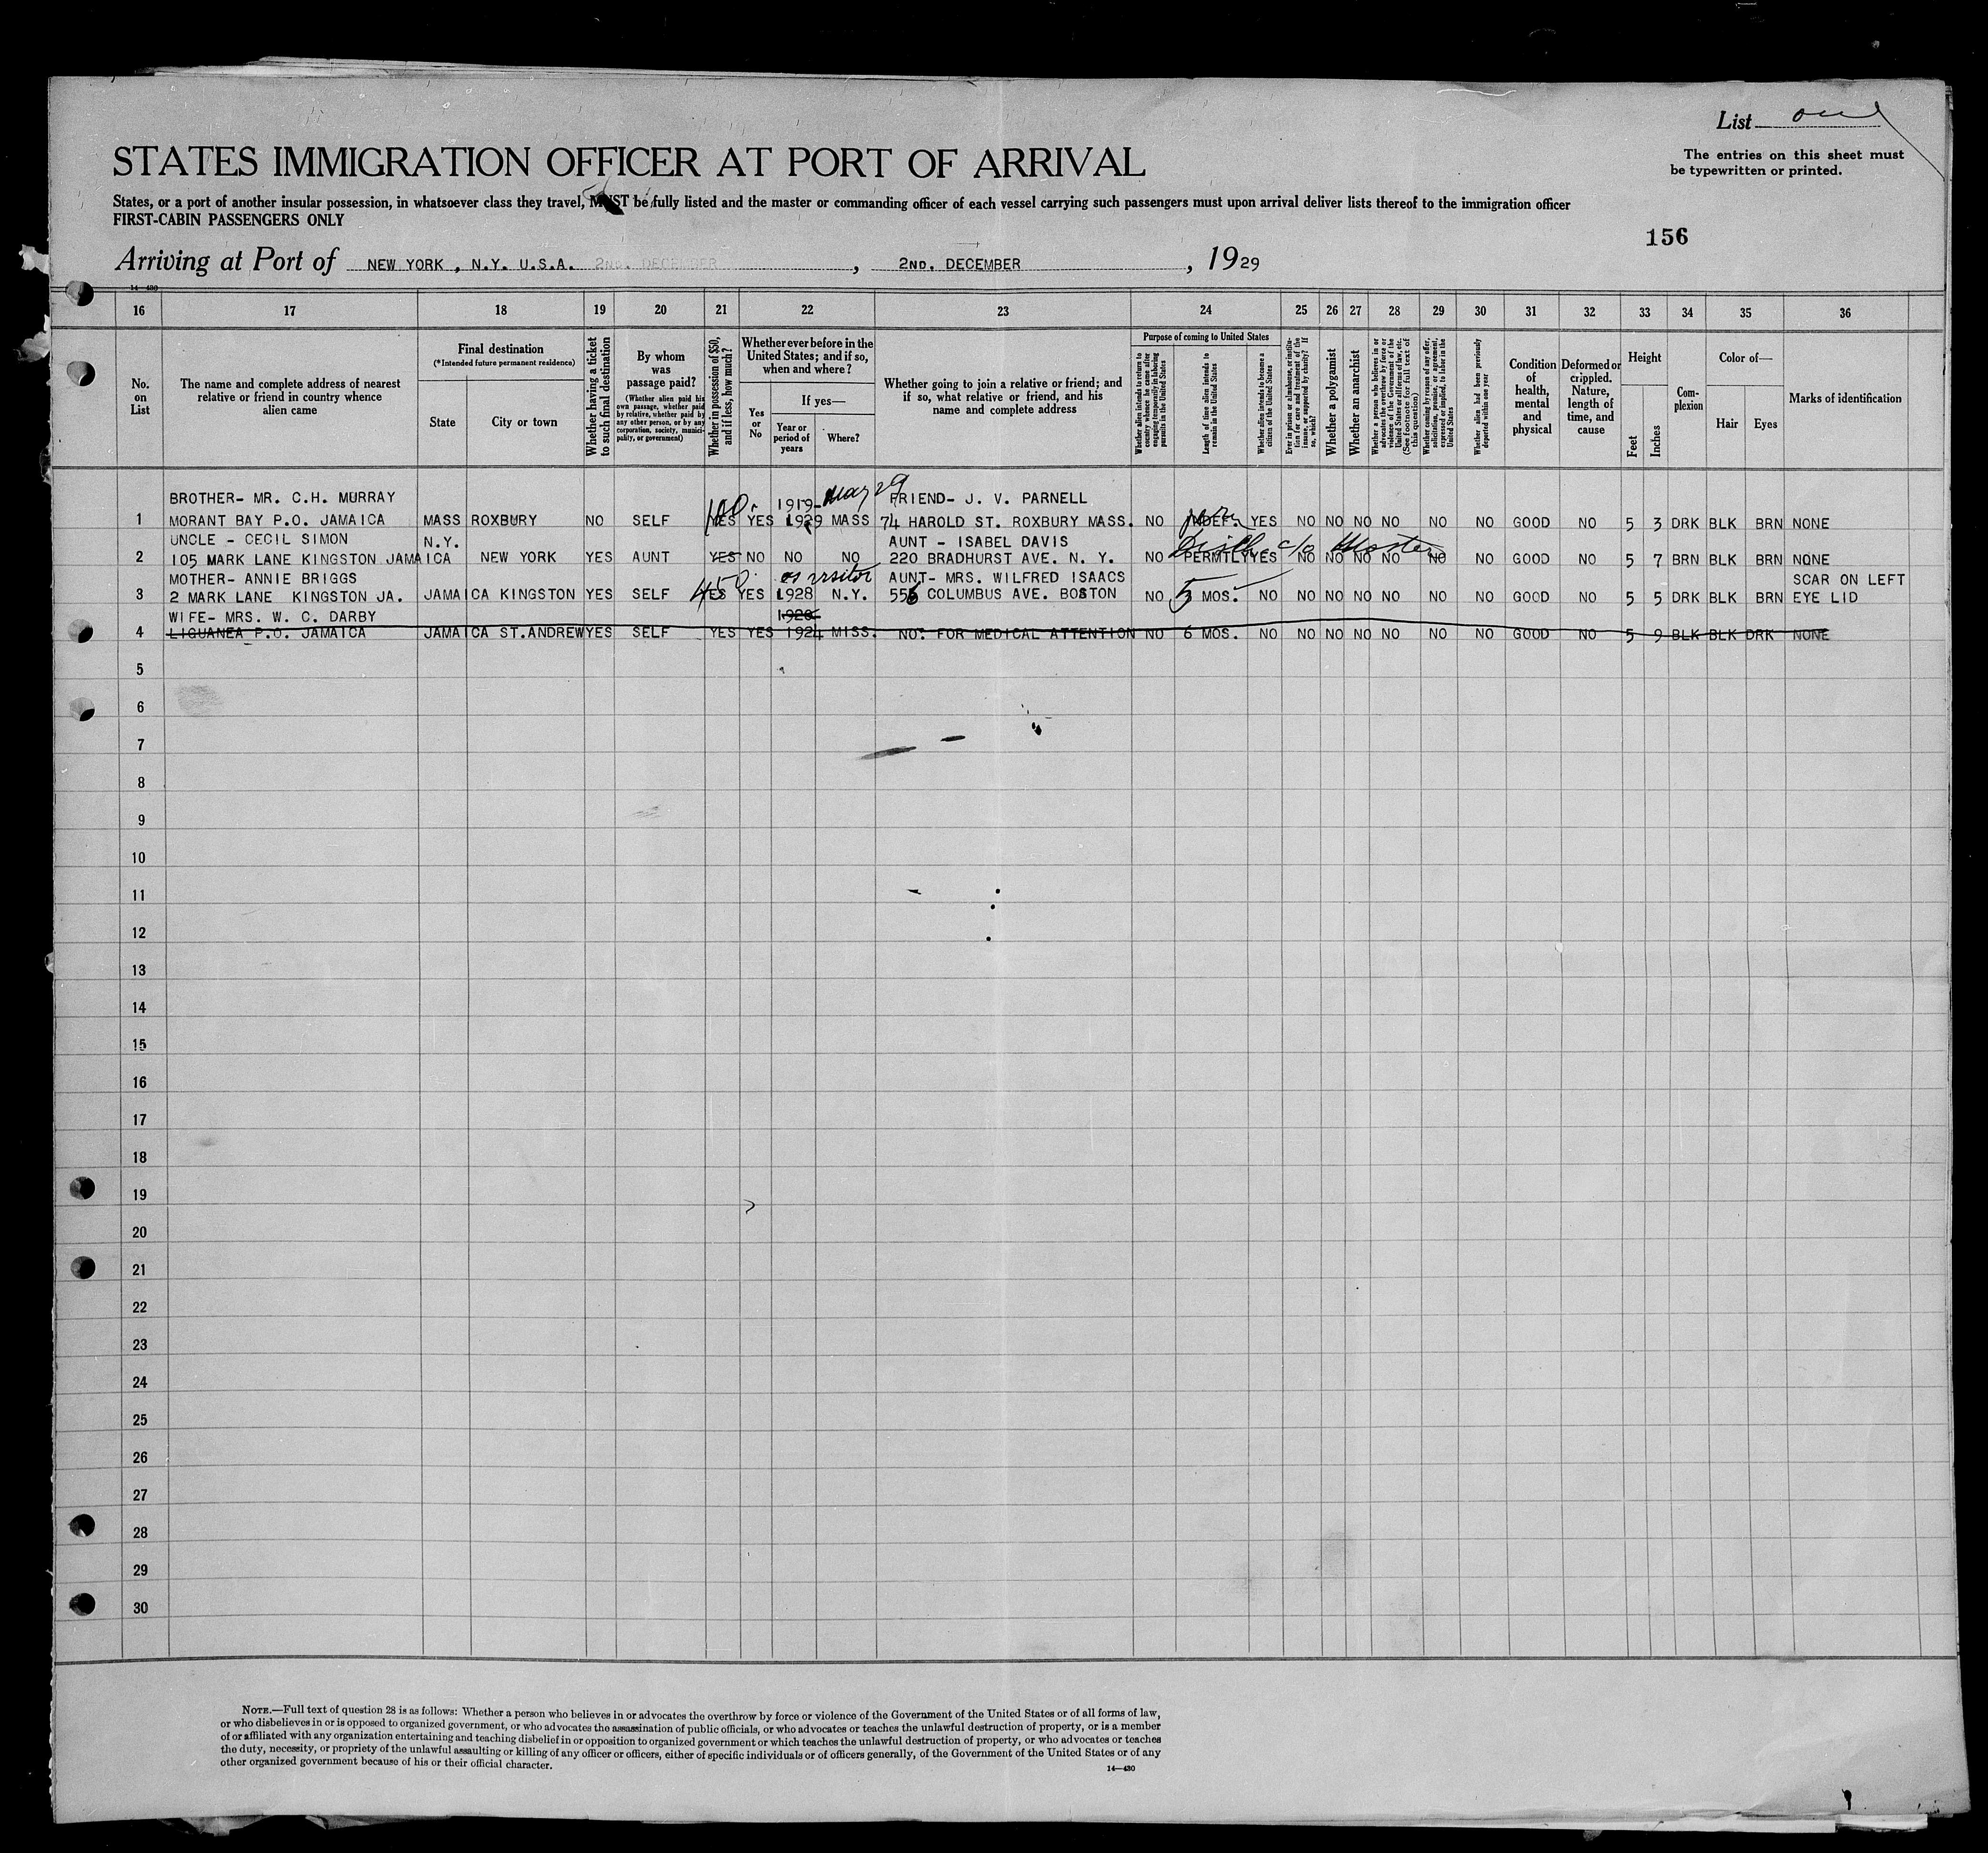 List one
The entries on this sheet must
be typewritten or printed.
STATES IMMIGRATION OFFICER AT PORT OF ARRIVAL
States, or a port of another insular possession, in whatsoever class they travel, MUST be fully listed and the master or commanding officer of each vessel carrying such passengers must upon arrival deliver lists thereof to the immigration officer
FIRST-CABIN PASSENGERS ONLY
156
Arriving at Port of NEW YORK , N.Y. U.S.A. 2ND. DECEMBER , 2ND. DECEMBER , 1929
14—430
16 17 18 19 20 21 22 23 24 25 26 27 28 29 30 31 32 33 34 35 36
No. on List
The name and complete address of nearest relative or friend in country whence alien came
Final destination
(*Intended future permanent residence)
State
City or town
Whether having a ticket to such final destination
By whom was passage paid?
(Whether alien paid his own passage, whether paid by relative, whether paid by any other person, or by any corporation, society, municipality, or government)
Whether in possession of $50, and if less, how much?
Whether ever before in the United States; and if so, when and where?
Yes or No
If yes—
Year or period of years
Where?
Whether going to join a relative or friend; and if so, what relative or friend, and his name and complete address
Purpose of coming to United States
Whether alien intends to return to country whence he came after engaging temporarily in laboring pursuits in the United States
Length of time alien intends to remain in the United States
Whether alien intends to become a citizen of the United States
Ever in prison or almshouse, or institution for care and treatment of the insane, or supported by charity? If so, which?
Whether a polygamist
Whether an anarchist
Whether a person who believes in or advocates the overthrow by force or violence of the Government of the United States or all forms of law, etc. (See footnote for full text of this question)
Whether coming by reason of any offer, solicitation, promise, or agreement, expressed or implied, to labor in the United States
Whether alien had been previously deported within one year
Condition of health, mental and physical
Deformed or crippled. Nature, length of time, and cause
Height
Feet
Inches
Complexion
Color of—
Hair
Eyes
Marks of identification
BROTHER- MR. C.H. MURRAY 1919- May 29 FRIEND- J. V. PARNELL
1 MORANT BAY P.O. JAMAICA MASS ROXBURY NO SELF 100. YES YES 1929 MASS 74 HAROLD ST. ROXBURY MASS. NO INDEF. YES NO NO NO NO NO NO GOOD NO 5 3 DRK BLK BRN NONE
UNCLE - CECIL SIMON N.Y. AUNT - ISABEL DAVIS
2 105 MARK LANE KINGSTON JAMAICA NEW YORK YES AUNT YES NO NO NO 220 BRADHURST AVE. N. Y. NO PERMTLY YES NO NO NO NO NO NO GOOD NO 5 7 BRN BLK BRN NONE
MOTHER- ANNIE BRIGGS as visitor AUNT- MRS. WILFRED ISAACS SCAR ON LEFT
3 2 MARK LANE KINGSTON JA. JAMAICA KINGSTON YES SELF YES YES 1928 N.Y. 556 COLUMBUS AVE. BOSTON NO 3 MOS. NO NO NO NO NO NO NO GOOD NO 5 5 DRK BLK BRN EYE LID
WIFE- MRS. W. C. DARBY
4 LIGUANEA P.O. JAMAICA JAMAICA ST.ANDREW YES SELF YES YES 1924 MISS. NO. FOR MEDICAL ATTENTION NO 6 MOS. NO NO NO NO NO NO NO GOOD NO 5 9 BLK BLK DRK NONE
5
6
7
8
9
10
11
12
13
14
15
16
17
18
19
20
21
22
23
24
25
26
27
28
29
30
NOTE.—Full text of question 28 is as follows: Whether a person who believes in or advocates the overthrow by force or violence of the Government of the United States or of all forms of law,
or who disbelieves in or is opposed to organized government, or who advocates the assassination of public officials, or who advocates or teaches the unlawful destruction of property, or is a member
of or affiliated with any organization entertaining and teaching disbelief in or opposition to organized government or which teaches the unlawful destruction of property, or who advocates or teaches
the duty, necessity, or propriety of the unlawful assaulting or killing of any officer or officers, either of specific individuals or of officers generally, of the Government of the United States or of any
other organized government because of his or their official character.
14—430